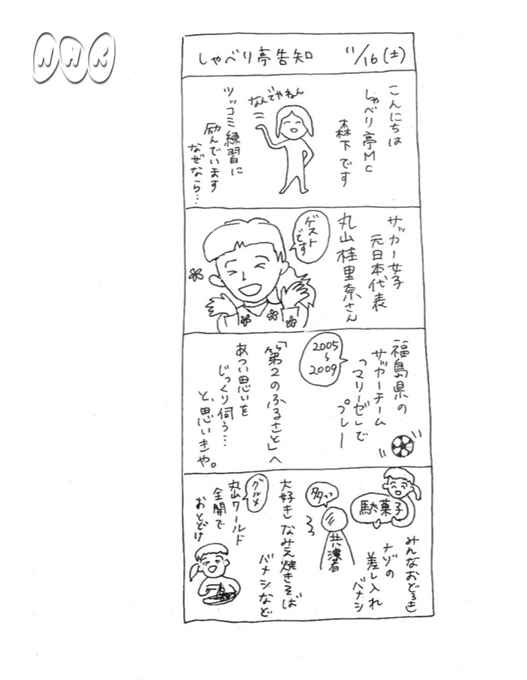 NHK
しゃべり亭告知
11/16(土)
こんにちは
しゃべり亭MC
森下です
なんでやねん
ツッコミ練習に
励んでいます
なぜなら…
サッカー女子
元日本代表
丸山桂里奈さん
ゲスト
です
福島県の
サッカーチーム
「マリーゼ」で
プレー
2005
〜
2009
「第2のふるさと」へ
あつい思いを
じっくり伺う…
と、思いきや。
駄菓子
みんなおどろき
ナゾの
差し入れ
バナシ
多っ
共演者
大好きなみえ焼きそば
バナシなど
グルメ
丸山ワールド
全開で
おとどけ